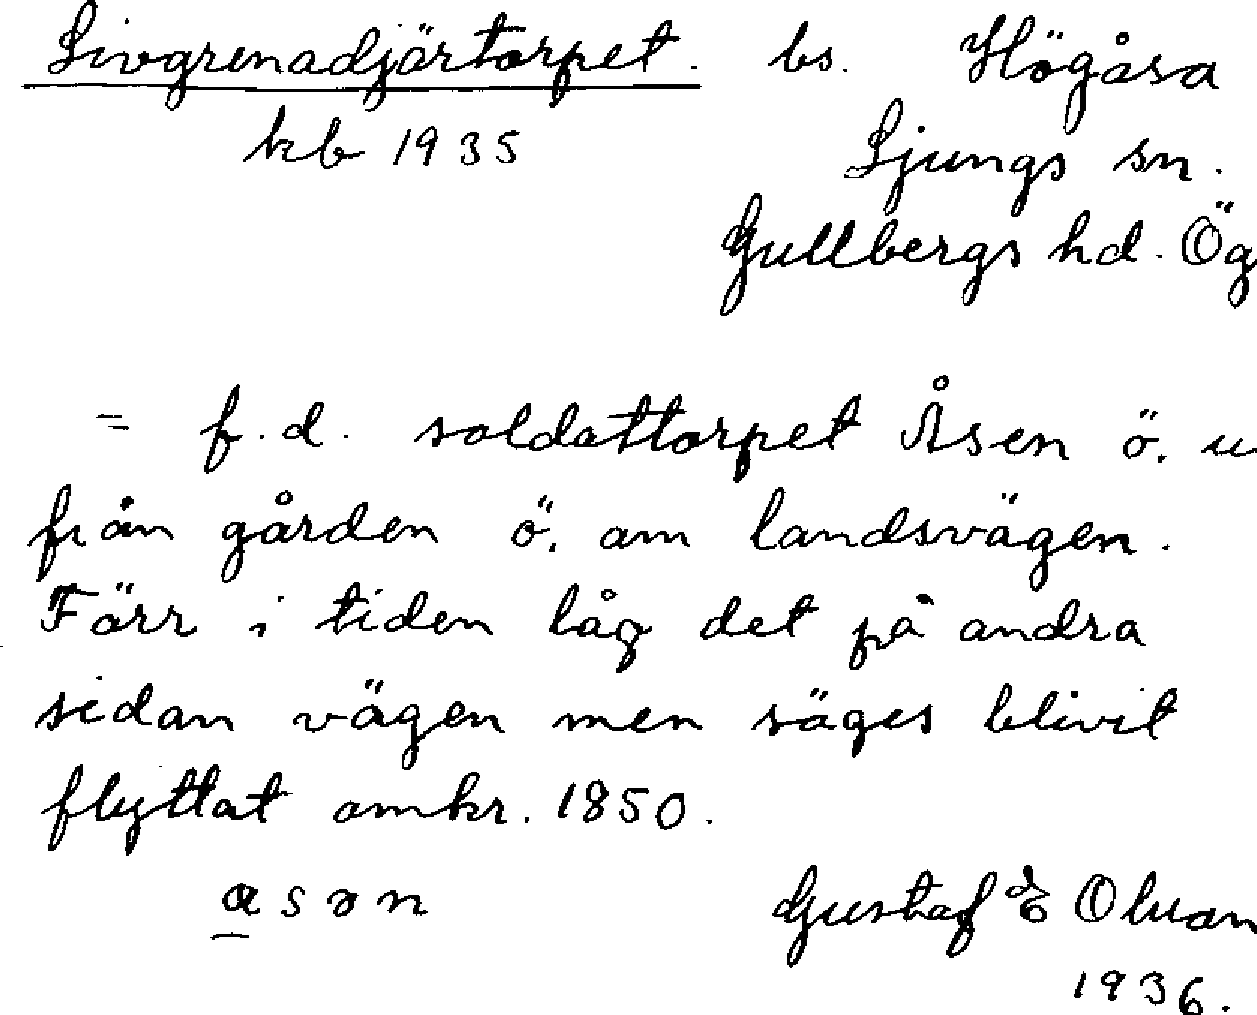 Livgrenadjärtorpet. bs. Högåsa
kb 1935 Ljungs sn.
Gullbergs hd. Ög
= f.d. soldattorpet Åsen ö. u
från gården ö. om landsvägen.
Förr i tiden låg det på andra
sidan vägen men säges blivit
flyttat omkr. 1850.
Gustaf E
1936.